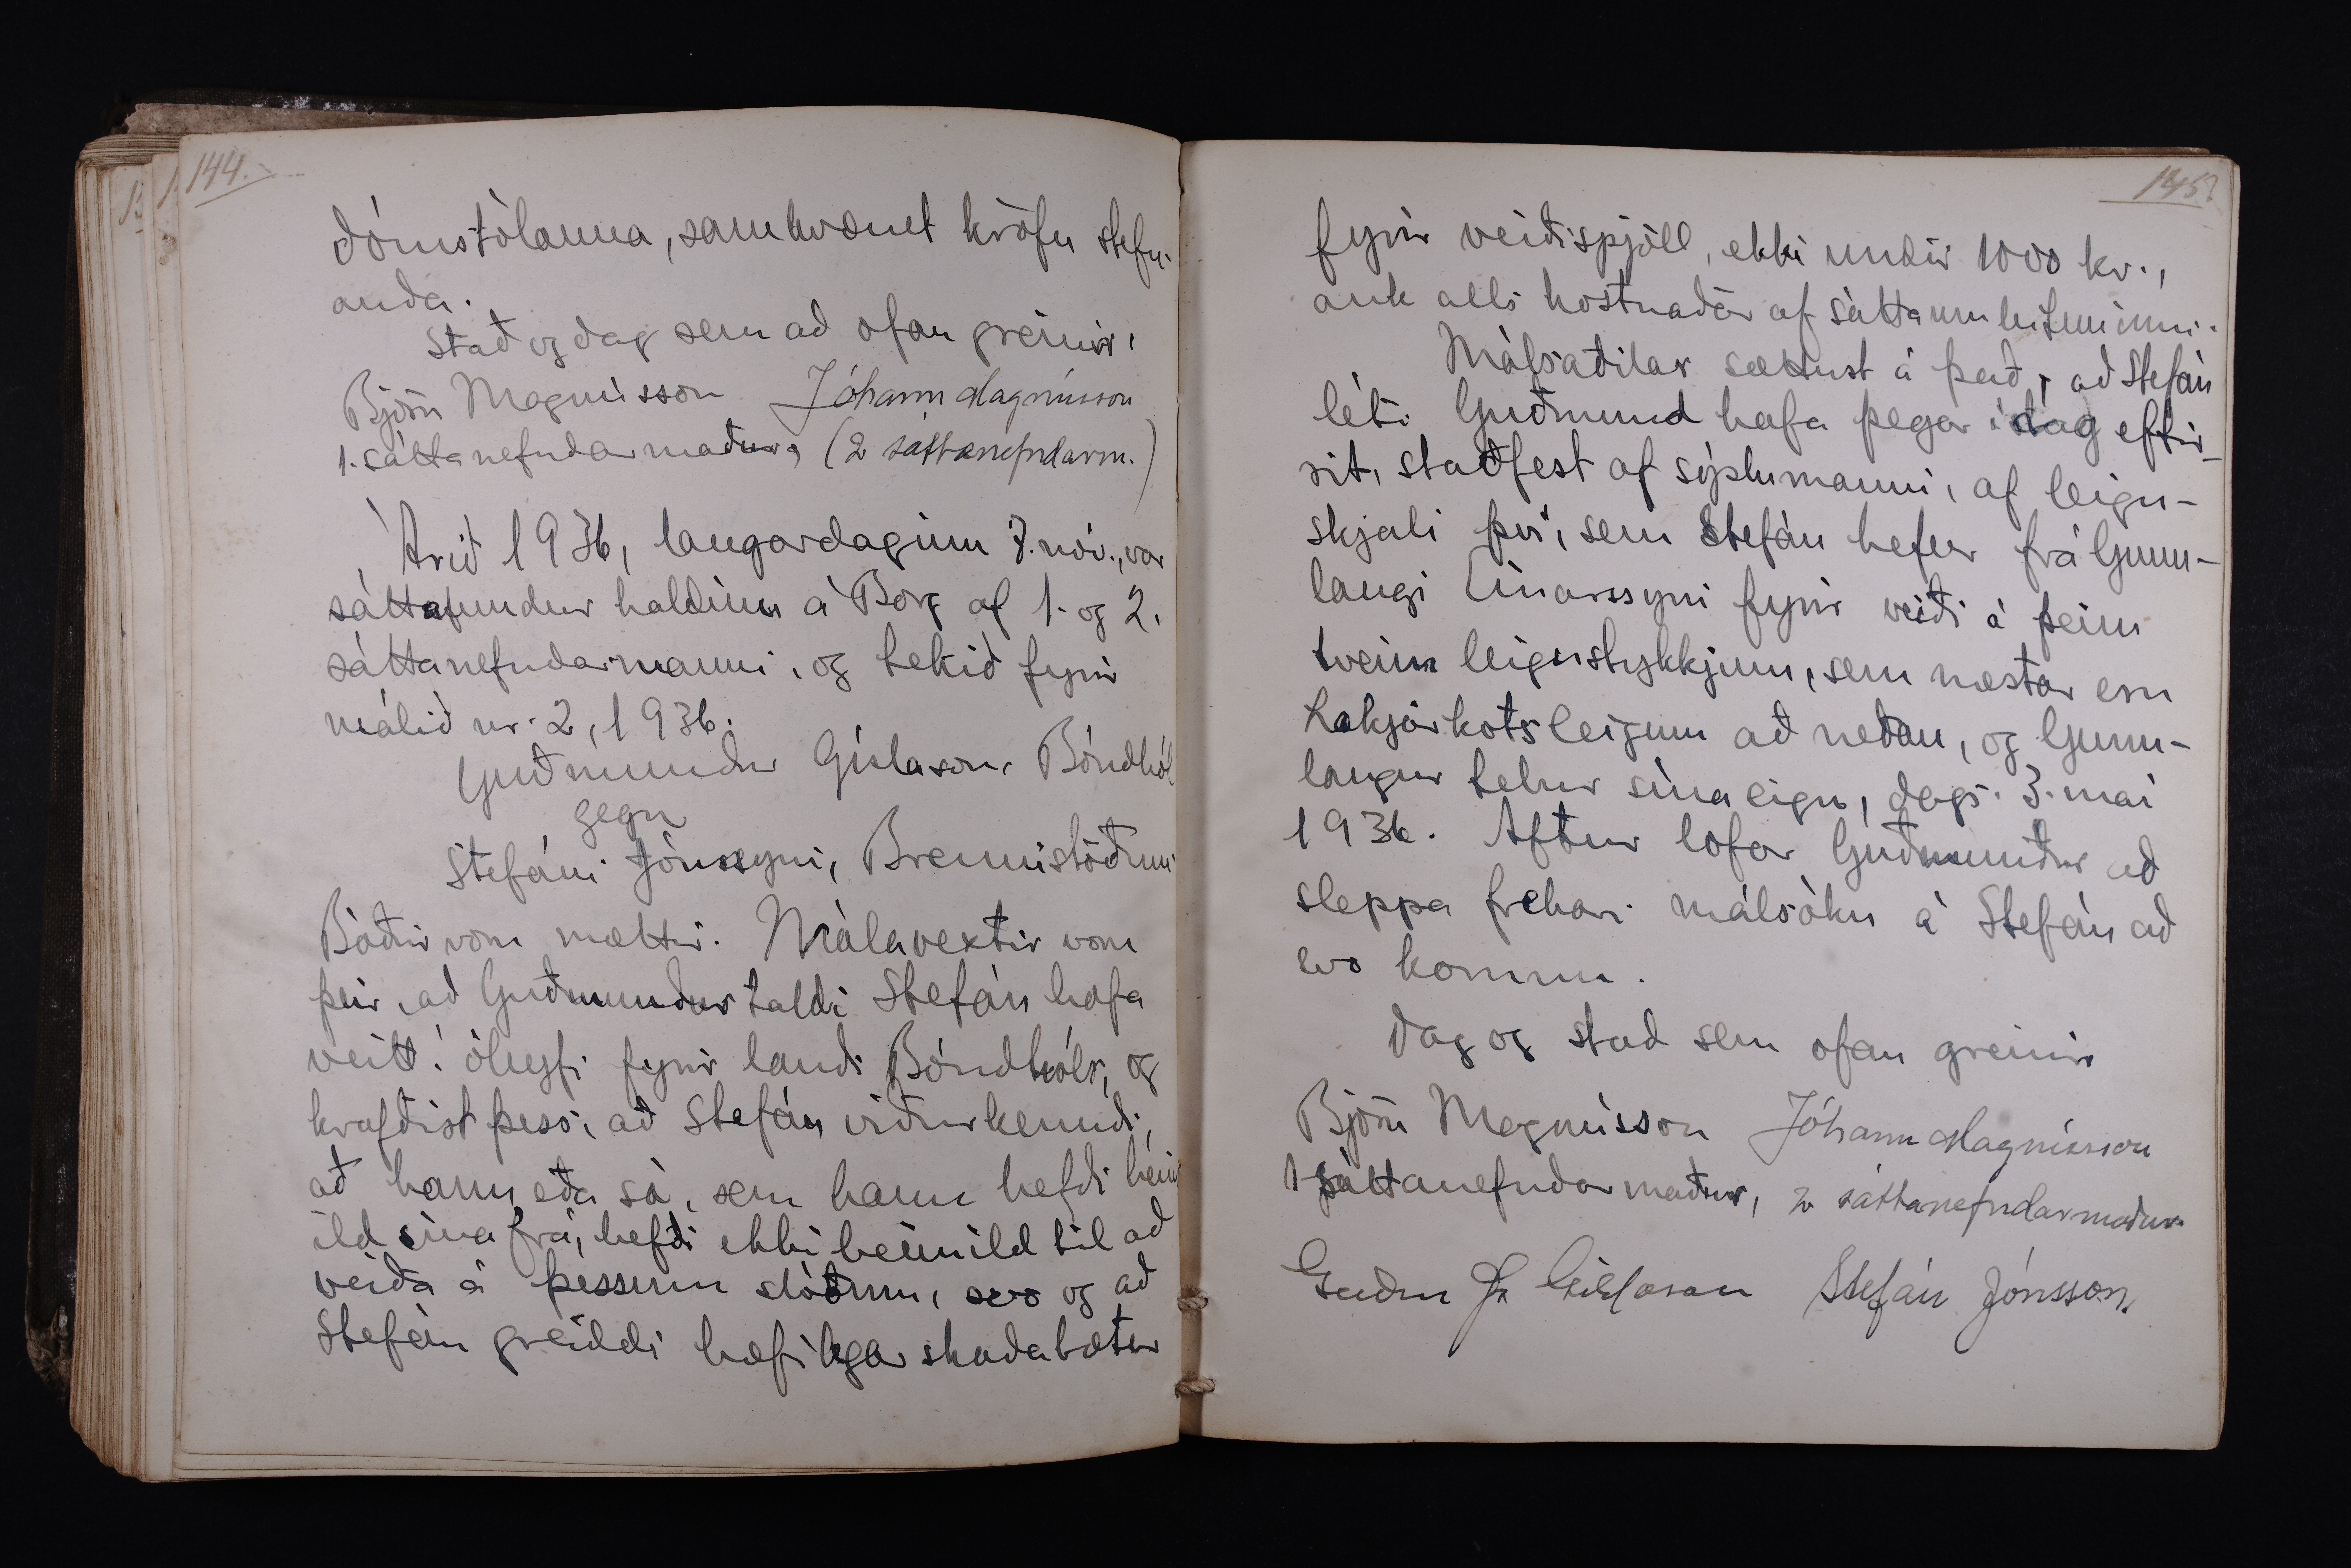 144.
dómstólanna, samkvæmt kröfu stefn-
anda.
Stað og dag sem að ofan greinir,
Björn Magnússon Jóhann Magnússon
1. sáttanefndarmaður, (2 sáttanefndarm.)
Árið 1936, laugardaginn 7. nóv., var
sáttafundur haldinn á Borg af 1. og 2.
sáttanefndarmanni, og tekið fyrir
málið nr. 2, 1936.
Guðmundur Gíslason, Bóndhól
gegn
Stefáni Jónssyni, Brennistöðum
Báðir voru mættir. Málavextir voru
þeir, að Guðmundur taldi Stefán hafa
veitt í óleyfi fyrir landi Bóndhóls, og
krafðist þess, að Stefán viðurkenndi,
að hann, eða sá, sem hann hefði heim
ild sína frá, hefði ekki heimild til að
veiða á þessum slóðum, svo og að
Stefán greiddi hæfilegar skaðabætur
145
fyrir veiðispjöll, ekki undir 1000 kr.,
auk alls kostnaðar af sáttaumleituninni.
Málsaðilar sættust á það, að Stefán
léti Guðmund hafa þegar í dag eftir-
rit, staðfest af sýslumanni, af leigu-
skjali því, sem Stefán hefur frá Gunn-
laugi Einarssyni fyrir veiði á þeim
tveim leigustykkjum, sem næstar eru
Lækjarkotsleigum að neðan, og Gunn-
laugur telur sína eign, dags. 3. maí
1936. Aftur lofar Guðmundur að
sleppa frekari málsókn á Stefán að
svo komnu.
Dag og stað sem ofan greinir
Björn Magnússon Jóhann Magnússon
1 sáttanefndarmaður, 2 sáttanefndarmaður
Guðm Gíslason Stefán Jónsson.